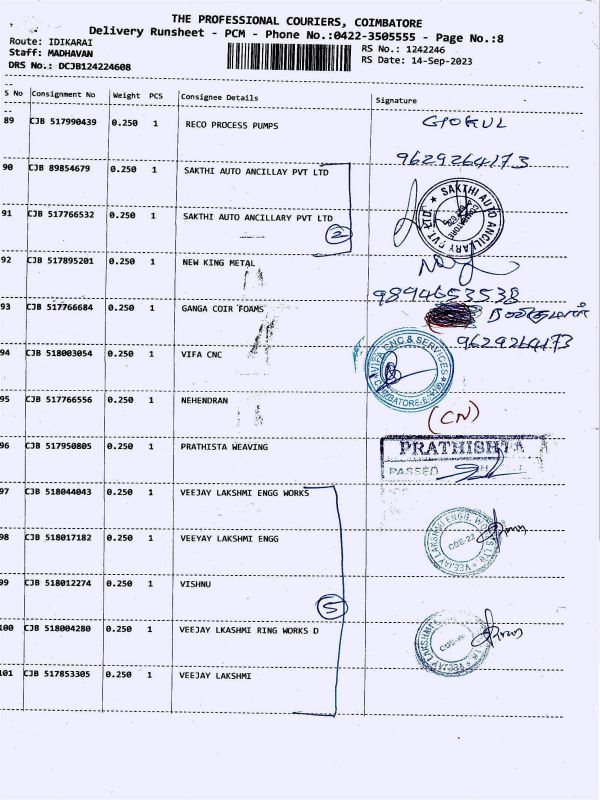 THE PROFESSIONAL COURIERS, COIMBATORE
Delivery Runsheet - PCM - Phone No.:0422-3505555 - Page No.:8
Route: IDIKARAI
RS No.: 1242246
Staff: MADHAVAN
RS Date: 14-Sep-2023
DRS No.: DCJB124224608
S No Consignment No Weight PCS Consignee Details Signature
89 CJB 517990439 0.250 1 RECO PROCESS PUMPS GOKUL
9629264173
90 CJB 89854679 0.250 1 SAKTHI AUTO ANCILLAY PVT LTD
91 CJB 517766532 0.250 1 SAKTHI AUTO ANCILLARY PVT LTD
2
SAKTHI AUTO ANCILLARY PVT LTD
92 CJB 517895201 0.250 1 NEW KING METAL
9894653538
93 CJB 517766684 0.250 1 GANGA COIR FOAMS
9629264173
94 CJB 518003054 0.250 1 VIFA CNC
VIFA CNC & SERVICES
95 CJB 517766556 1 NEHENDRAN
0.250
(CN)
96 CJB 517950805 0.250 1 PRATHISTA WEAVING
PRATHISHTA
PASSED
97 CJB 518044043 0.250 1 VEEJAY LAKSHMI ENGG WORKS
VEEJAY LAKSHMI ENGG. WORKS LTD
98 CJB 518017182 0.250 1 VEEYAY LAKSHMI ENGG
99 CJB 518012274 0.250 1 VISHNU
5
100 CJB 518004280 0.250 1 VEEJAY LKASHMI RING WORKS D
VEEJAY LAKSHMI
101 CJB 517853305 0.250 1 VEEJAY LAKSHMI